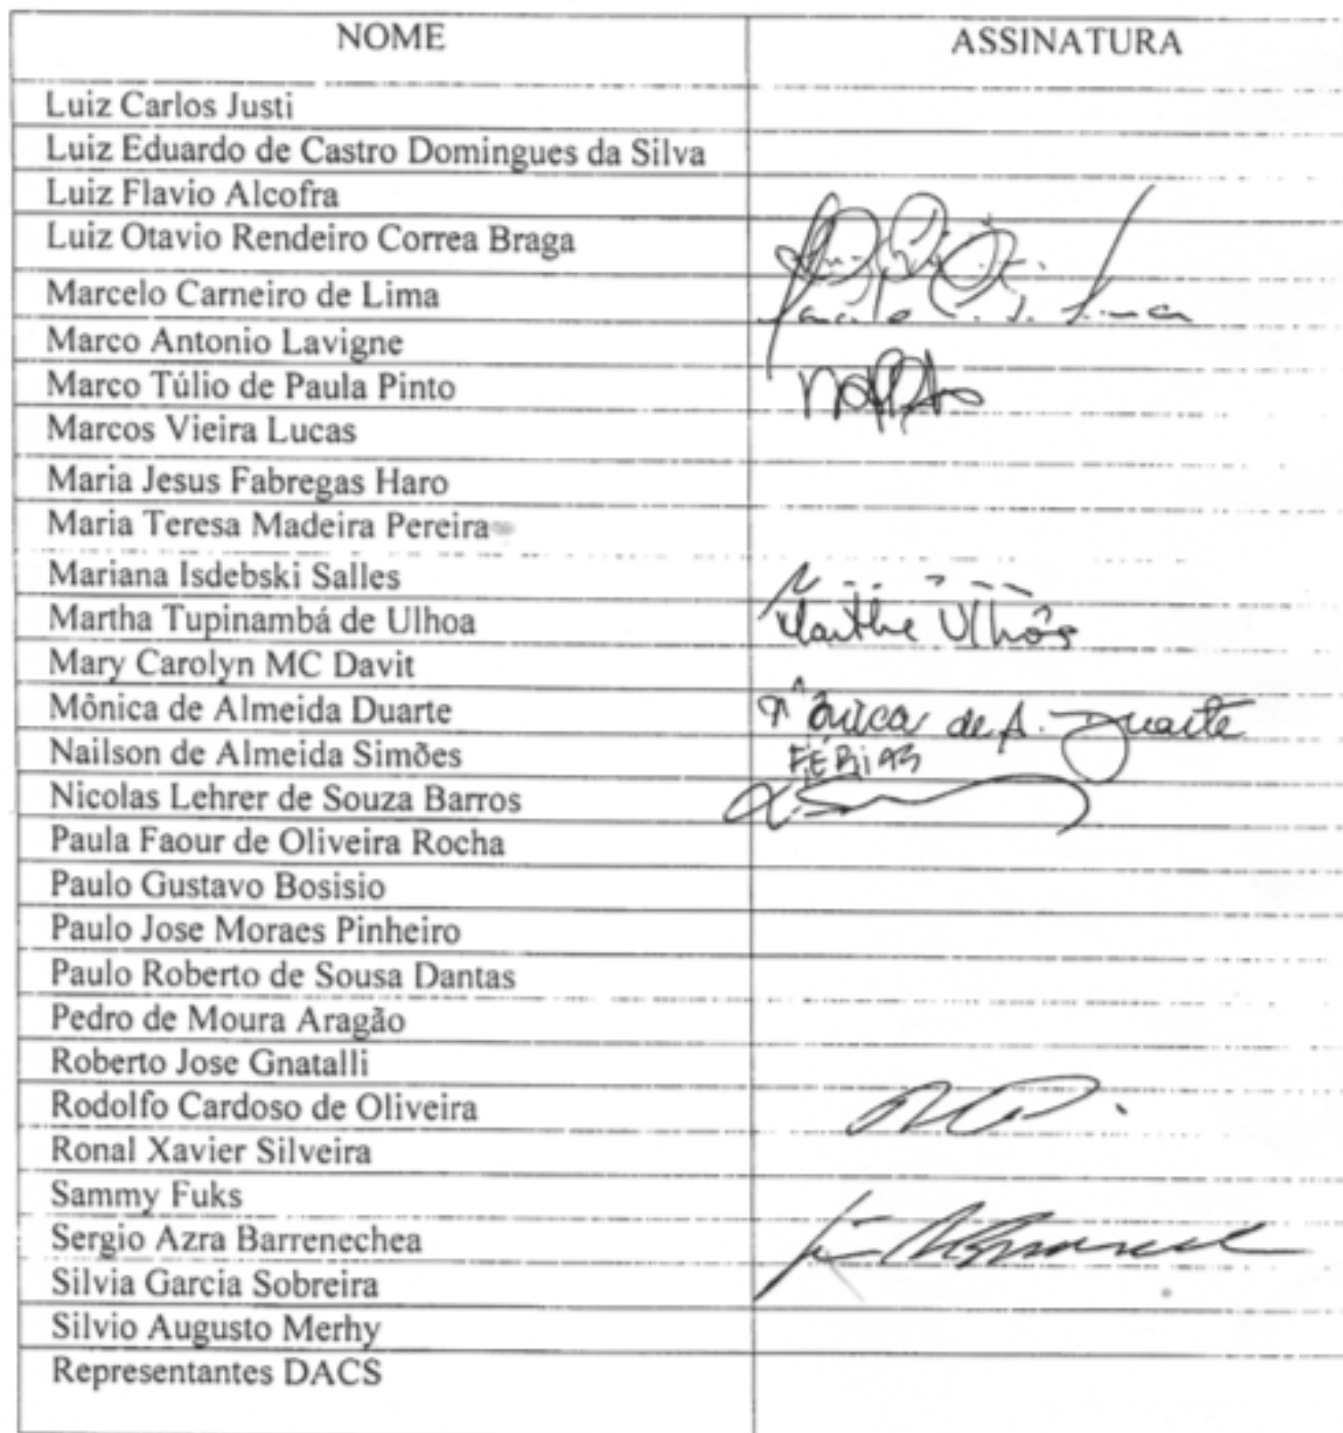 NOME ASSINATURA
Luiz Carlos Justi
Luiz Eduardo de Castro Domingues da Silva
Luiz Flavio Alcofra
Luiz Otavio Rendeiro Correa Braga
Marcelo Carneiro de Lima
Marco Antonio Lavigne
Marco Túlio de Paula Pinto
Marcos Vieira Lucas
Maria Jesus Fabregas Haro
Maria Teresa Madeira Pereira
Mariana Isdebski Salles
Martha Tupinambá de Ulhoa Martha Ulhôa
Mary Carolyn MC Davit
Mônica de Almeida Duarte Mônica de A. Duarte
Nailson de Almeida Simões FÉRIAS
Nicolas Lehrer de Souza Barros
Paula Faour de Oliveira Rocha
Paulo Gustavo Bosisio
Paulo Jose Moraes Pinheiro
Paulo Roberto de Sousa Dantas
Pedro de Moura Aragão
Roberto Jose Gnatalli
Rodolfo Cardoso de Oliveira
Ronal Xavier Silveira
Sammy Fuks
Sergio Azra Barrenechea
Silvia Garcia Sobreira
Silvio Augusto Merhy
Representantes DACS